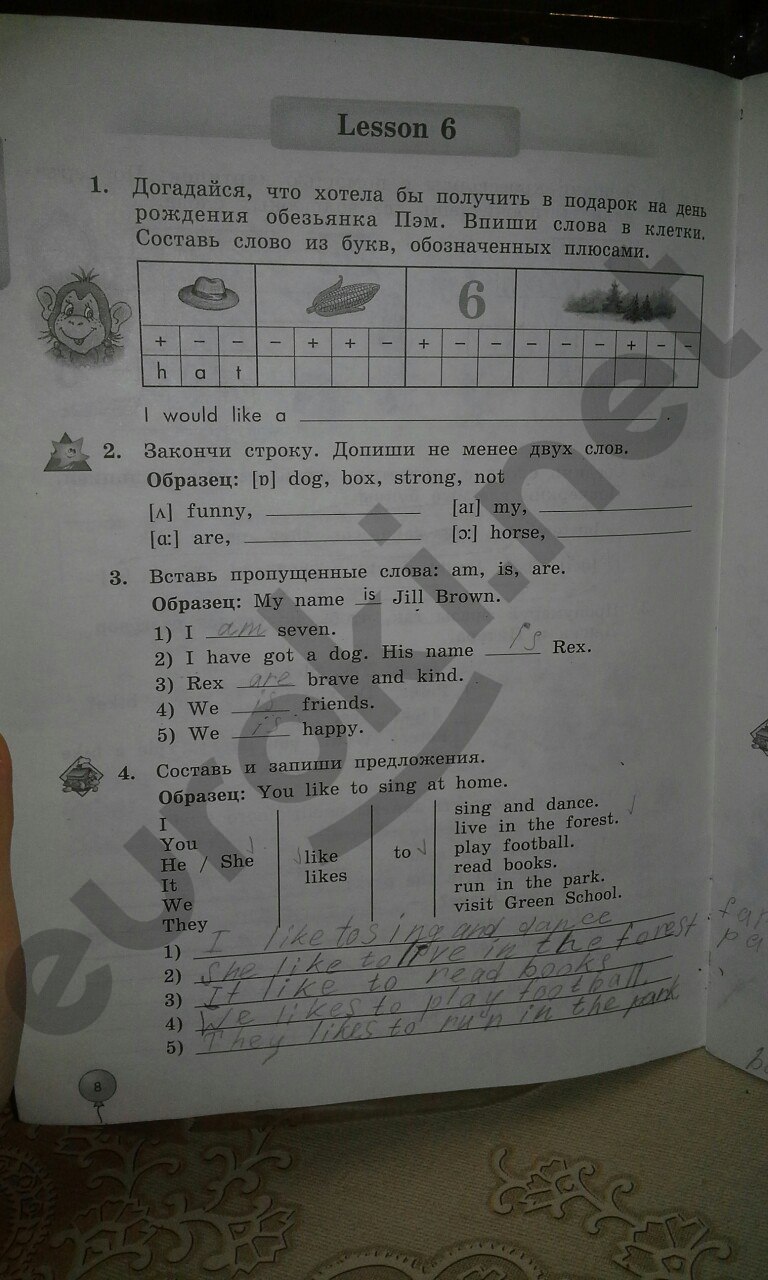 Lesson 6
1. Догадайся, что хотела бы получить в подарок на день
рождения обезьянка Пэм. Впиши слова в клетки.
Составь слово из букв, обозначенных плюсами.
6
+ − − − + + − + − − − − − + − −
h a t
I would like a ____ .
2. Закончи строку. Допиши не менее двух слов.
Образец: [ɒ] dog, box, strong, not
[ʌ] funny, ____ [aɪ] my, ____
[ɑ:] are, ____ [ɔ:] horse, ____
3. Вставь пропущенные слова: am, is, are.
Образец: My name is Jill Brown.
1) I am seven.
2) I have got a dog. His name is Rex.
3) Rex are brave and kind.
4) We is friends.
5) We is happy.
4. Составь и запиши предложения.
Образец: You like to sing at home.
I
You
He / She
It
We
They
like
likes
to
sing and dance.
live in the forest.
play football.
read books.
run in the park.
visit Green School.
1) I like to sing and dance
2) She like to live in the forest
3) It like to read books
4) We likes to play football.
5) They likes to run in the park
8
euroki.net